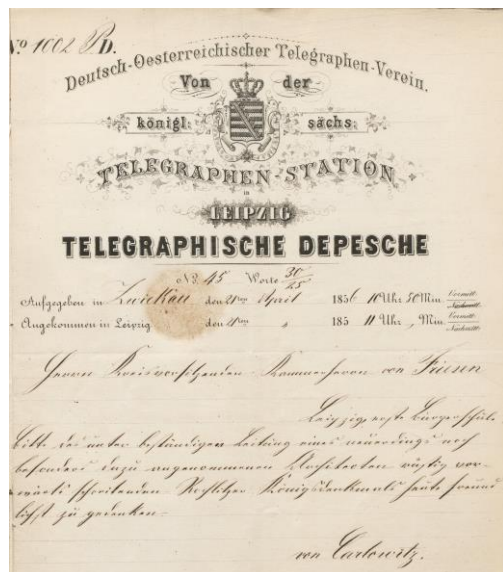 No 1002 PD.
Deutsch-Oesterreichischer Telegraphen-Verein.
Von der
königl: sächs:
TELEGRAPHEN-STATION
in
LEIPZIG
TELEGRAPHISCHE DEPESCHE
No 45 Worte 30/25
Aufgegeben in Zwickau den 21ten April 1856 10 Uhr 50 Min. Vormitt. Nachmitt.
Angekommen in Leipzig den 21ten " 185 11 Uhr „ Min. Vormitt. Nachmitt.
Herrn Kreisvorsitzenden Kammerherrn von Friesen
Leipzig, erste Bürgerschule
Bitte des unter beständigen Leitung eines neuerdings noch
besonders dazu angenommenen Architecten rüstig vor-
wärts schreitenden Rochlitzer Königsdenkmals heute freund
lichst zu gedenken.
von Carlowitz.